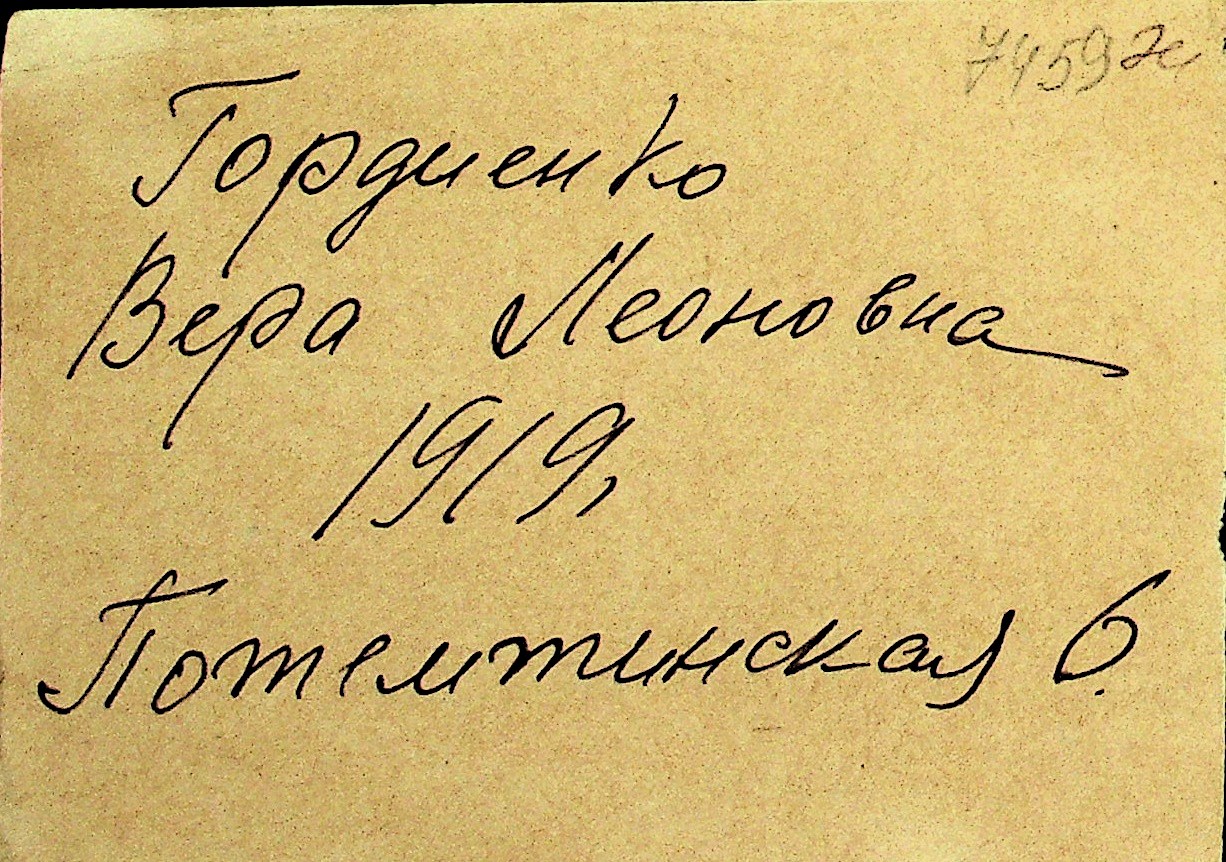 7459
Гордиенко
Вера Леоновна
1919,
Потемтинская 6.